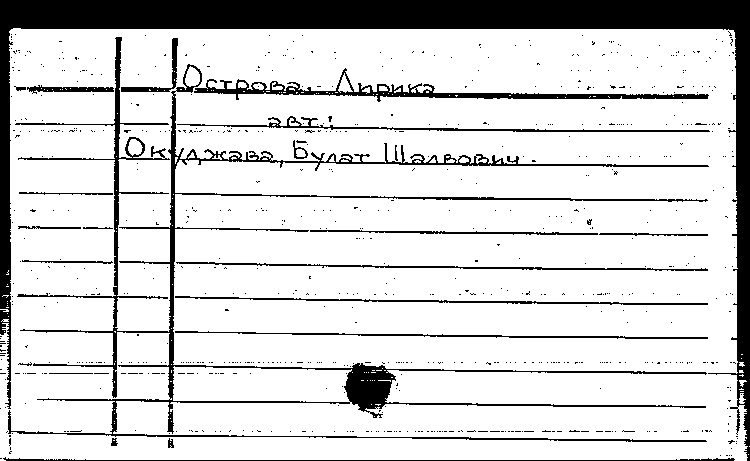 Острова. Лирика
авт.:
Окуджава, Булат Шалвович.